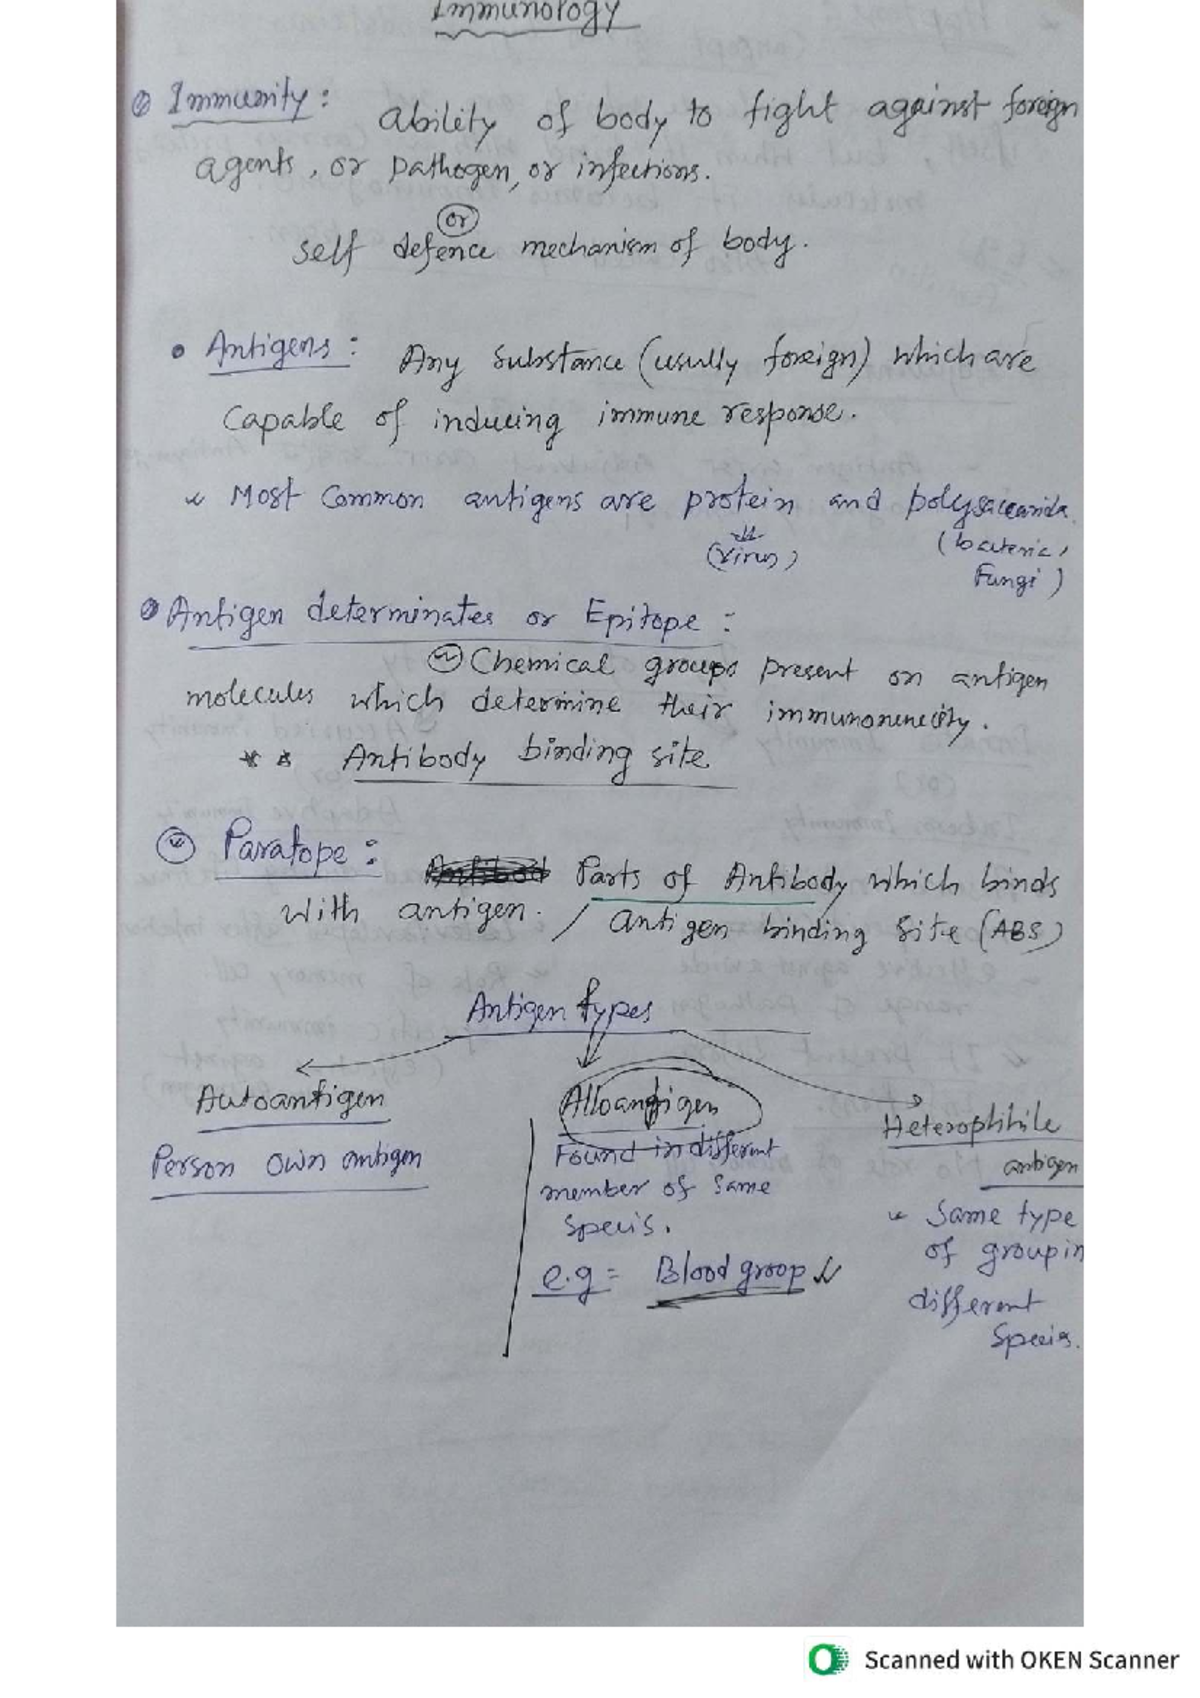 Immunology
Immunity: ability of body to fight against foreign
agents, or pathogen, or infections.
or
self defence mechanism of body.
Antigens: Any substance (usully foreign) which are
capable of inducing immune response.
Most common antigens are protein and
(virus) (bacteria,
Fungi)
Antigen determinates or Epitope:
Chemical groups present on antigen
molecules which determine their
** Antibody binding site
Paratope: Parts of Antibody which binds
with antigen. / antigen binding site (ABS)
Antigen types
Autoantigen Alloantigen Heterophihile
antigen
Person own antigen Found in different
member of same
specis.
e.g = Blood groop
Same type
of groupin
different
specis.
Scanned with OKEN Scanner